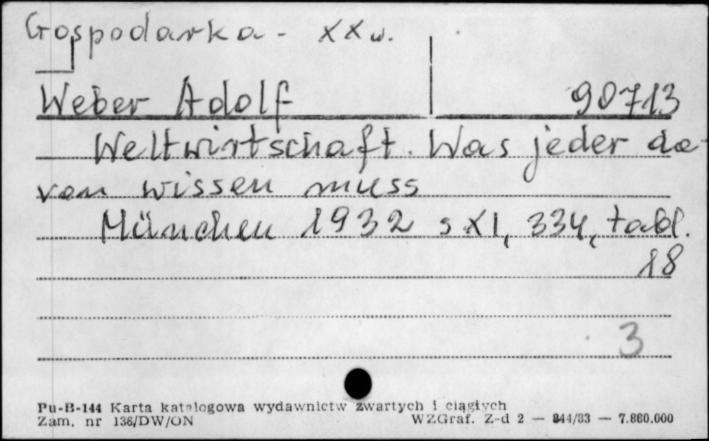 Gospodarka - XX w.
Weber Adolf 90713
Weltwirtschaft. Was jeder da-
von wissen muss
München 1932 s XI, 334, tabl.
18
3
Pu-B-144 Karta katalogowa wydawnictw zwartych i ciągłych
Zam. nr 136/DW/ON WZGraf. Z-d 2 — 844/83 — 7.860.000